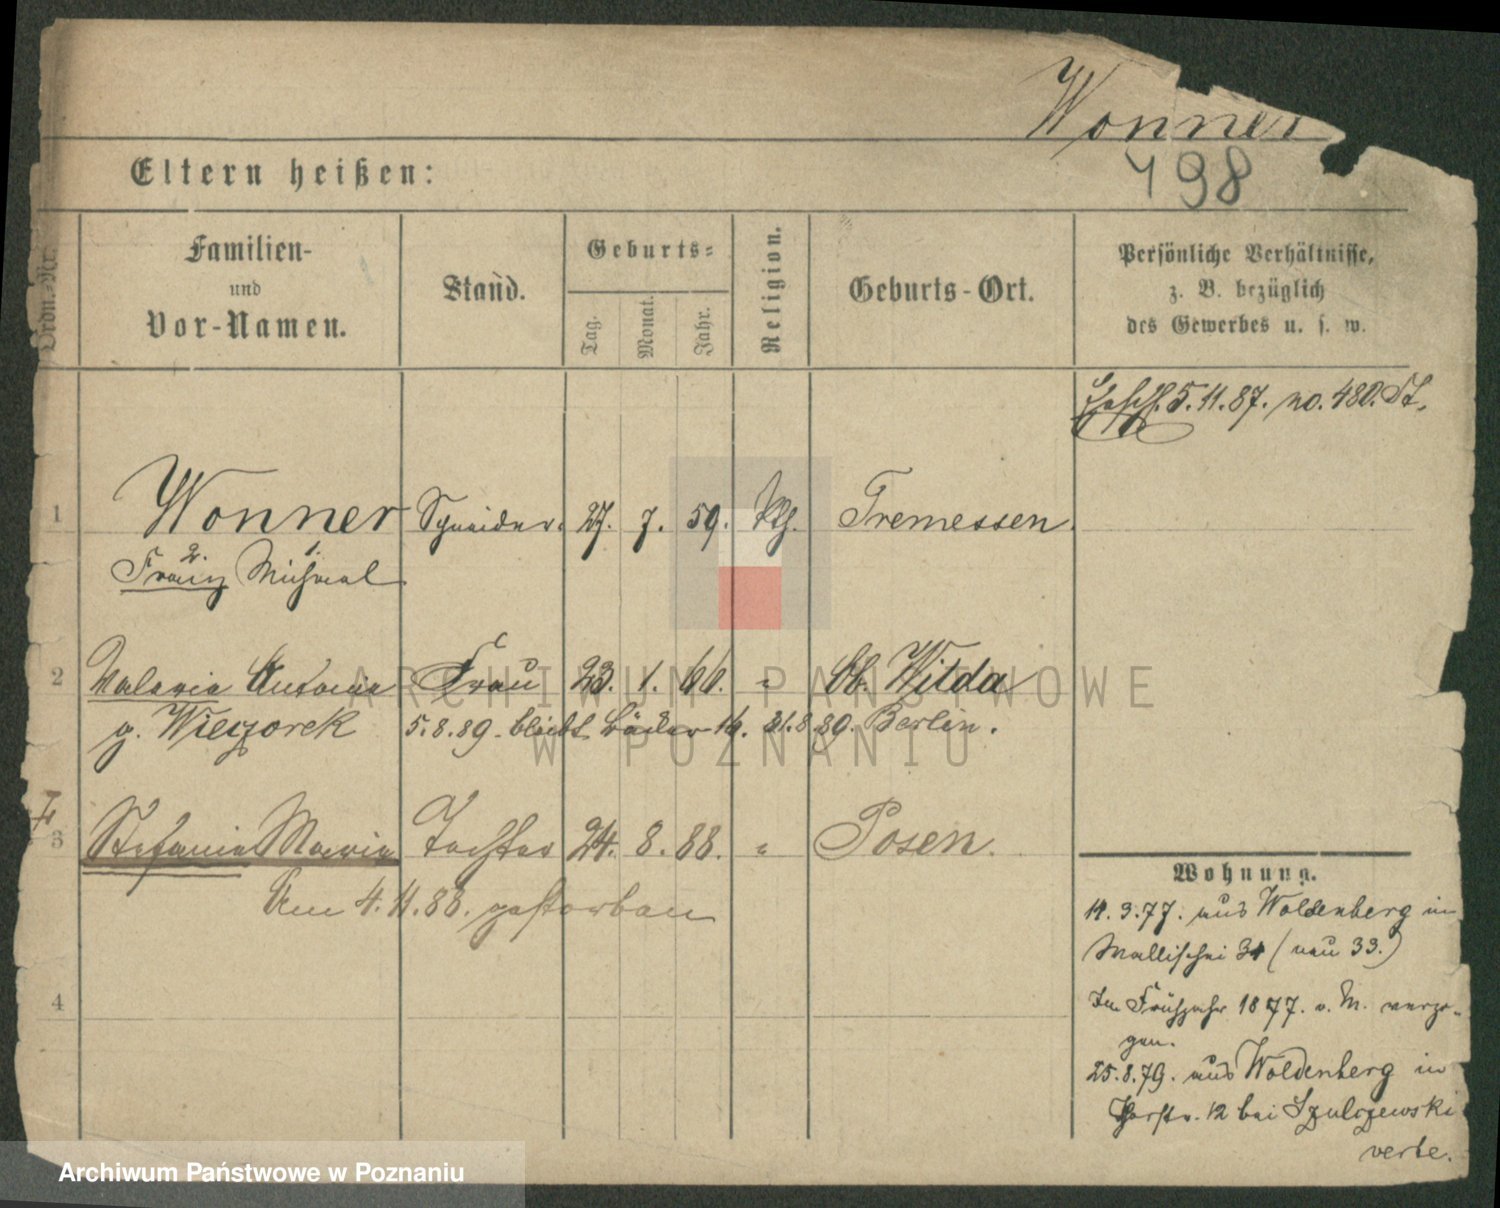 Wonner
498
Eltern heißen:
Ordn.-Nr.
Familien-
und
Vor-Namen.
Stand.
Geburts-
Tag.
Monat.
Jahr.
Religion.
Geburts-Ort.
Persönliche Verhältnisse,
z. B. bezüglich
des Gewerbes u. s. w.
5.11.87. no. 480. St.
1 Wonner Schneider. 27. 7. 59. Kth. Tremessen.
2. 1.
Franz Michael
2 Valeria Antonie Frau 23. 1. 66. " Ob. Wilda
g. Wieczorek 5.8.89. bleibt 14. 31.8.89. Berlin.
3 Stefania Maria Tochter 24. 8. 88. " Posen.
Am 4.11.88. gestorben
4
Wohnung.
14.3.77. aus Woldenberg in
Wallischei 34 (neu 33.)
Im Frühjahr 1877. v. M. verzo-
gen.
25.8.79. aus Woldenberg in
12 bei Szulczewski
verte.
ARCHIWUM PAŃSTWOWE
W POZNANIU
Archiwum Państwowe w Poznaniu